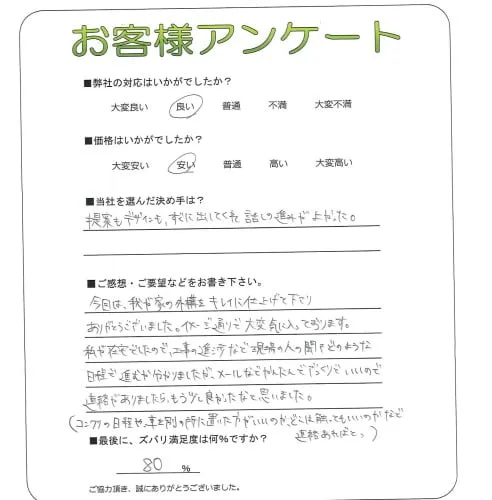 お客様アンケート
■弊社の対応はいかがでしたか？
大変良い 良い 普通 不満 大変不満
■価格はいかがでしたか？
大変安い 安い 普通 高い 大変高い
■当社を選んだ決め手は？
提案もデザインも、すぐに出してくれて話しの進みがよかった。
■ご感想・ご要望などをお書き下さい。
今回は、我が家の外構をキレイに仕上げて下さり
ありがとうございました。イメージ通りで大変気に入っております。
私が在宅でしたので、工事の進渉など現場の人に聞けどのような
日程で進むか分かりましたが、メールなどかんたんでざっくりでいいので
連絡がありましたら、もっと良かったなと思いました。
(コンクリの日程や、車を別の所に置いた方がいいのか、どこは触ってもいいのかなど
連絡あればと。)
■最後に、ズバリ満足度は何％ですか？
80 ％
ご協力頂き、誠にありがとうございました。